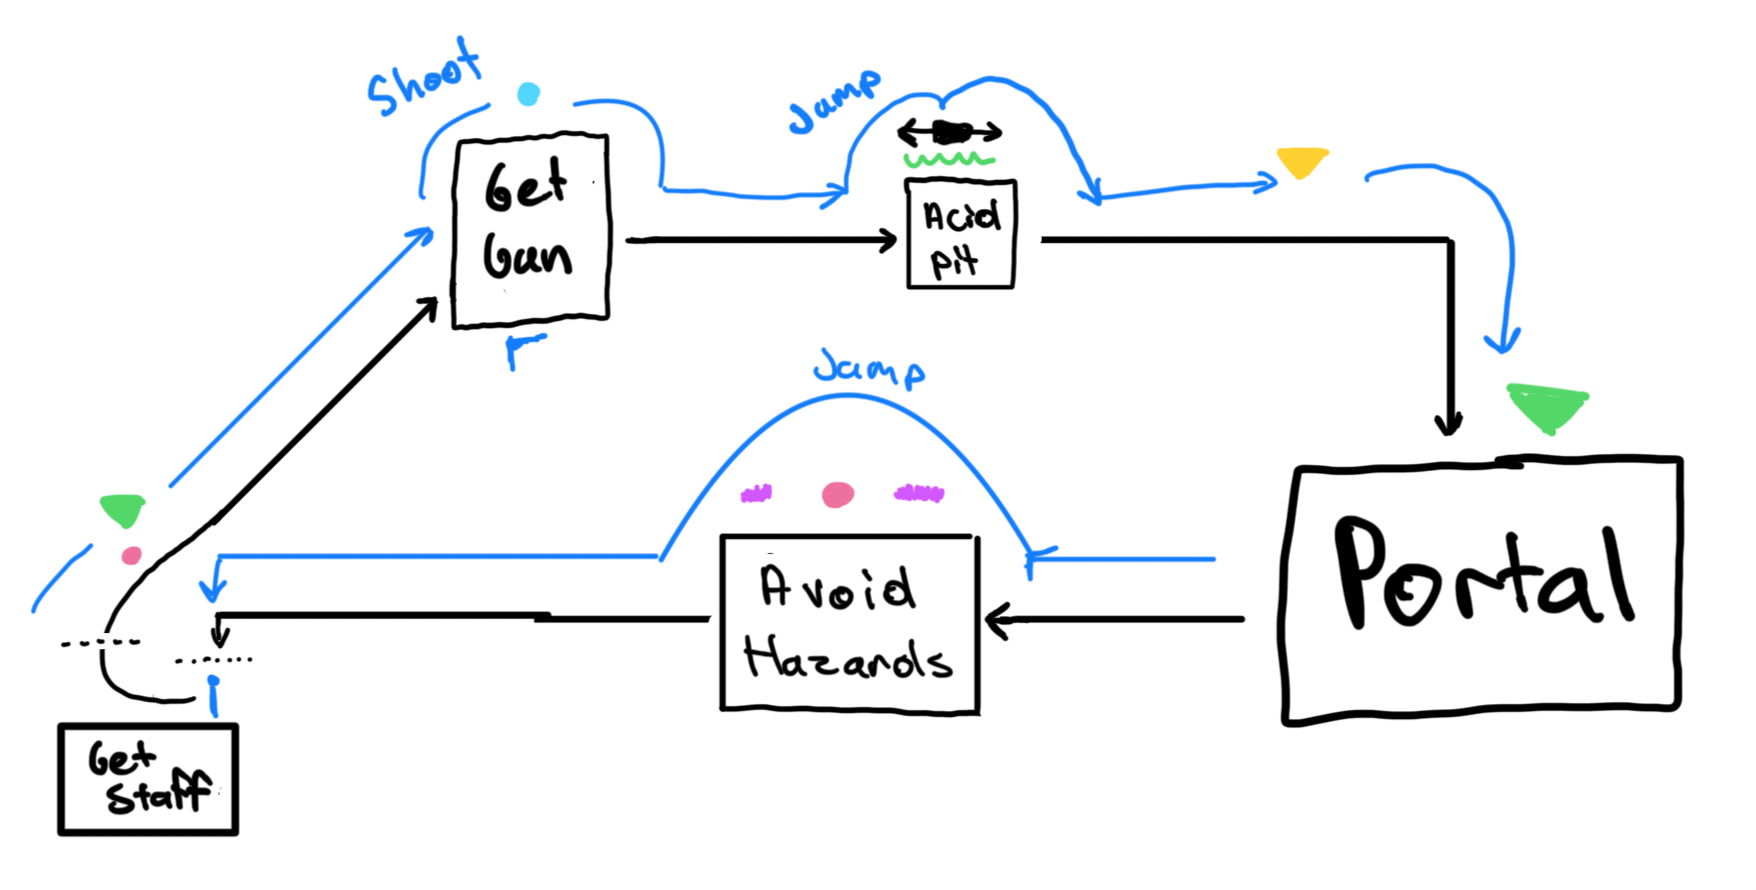 Shoot
Jump
Get
Gun
Acid
pit
Jump
Portal
Avoid
Hazards
Get
Staff